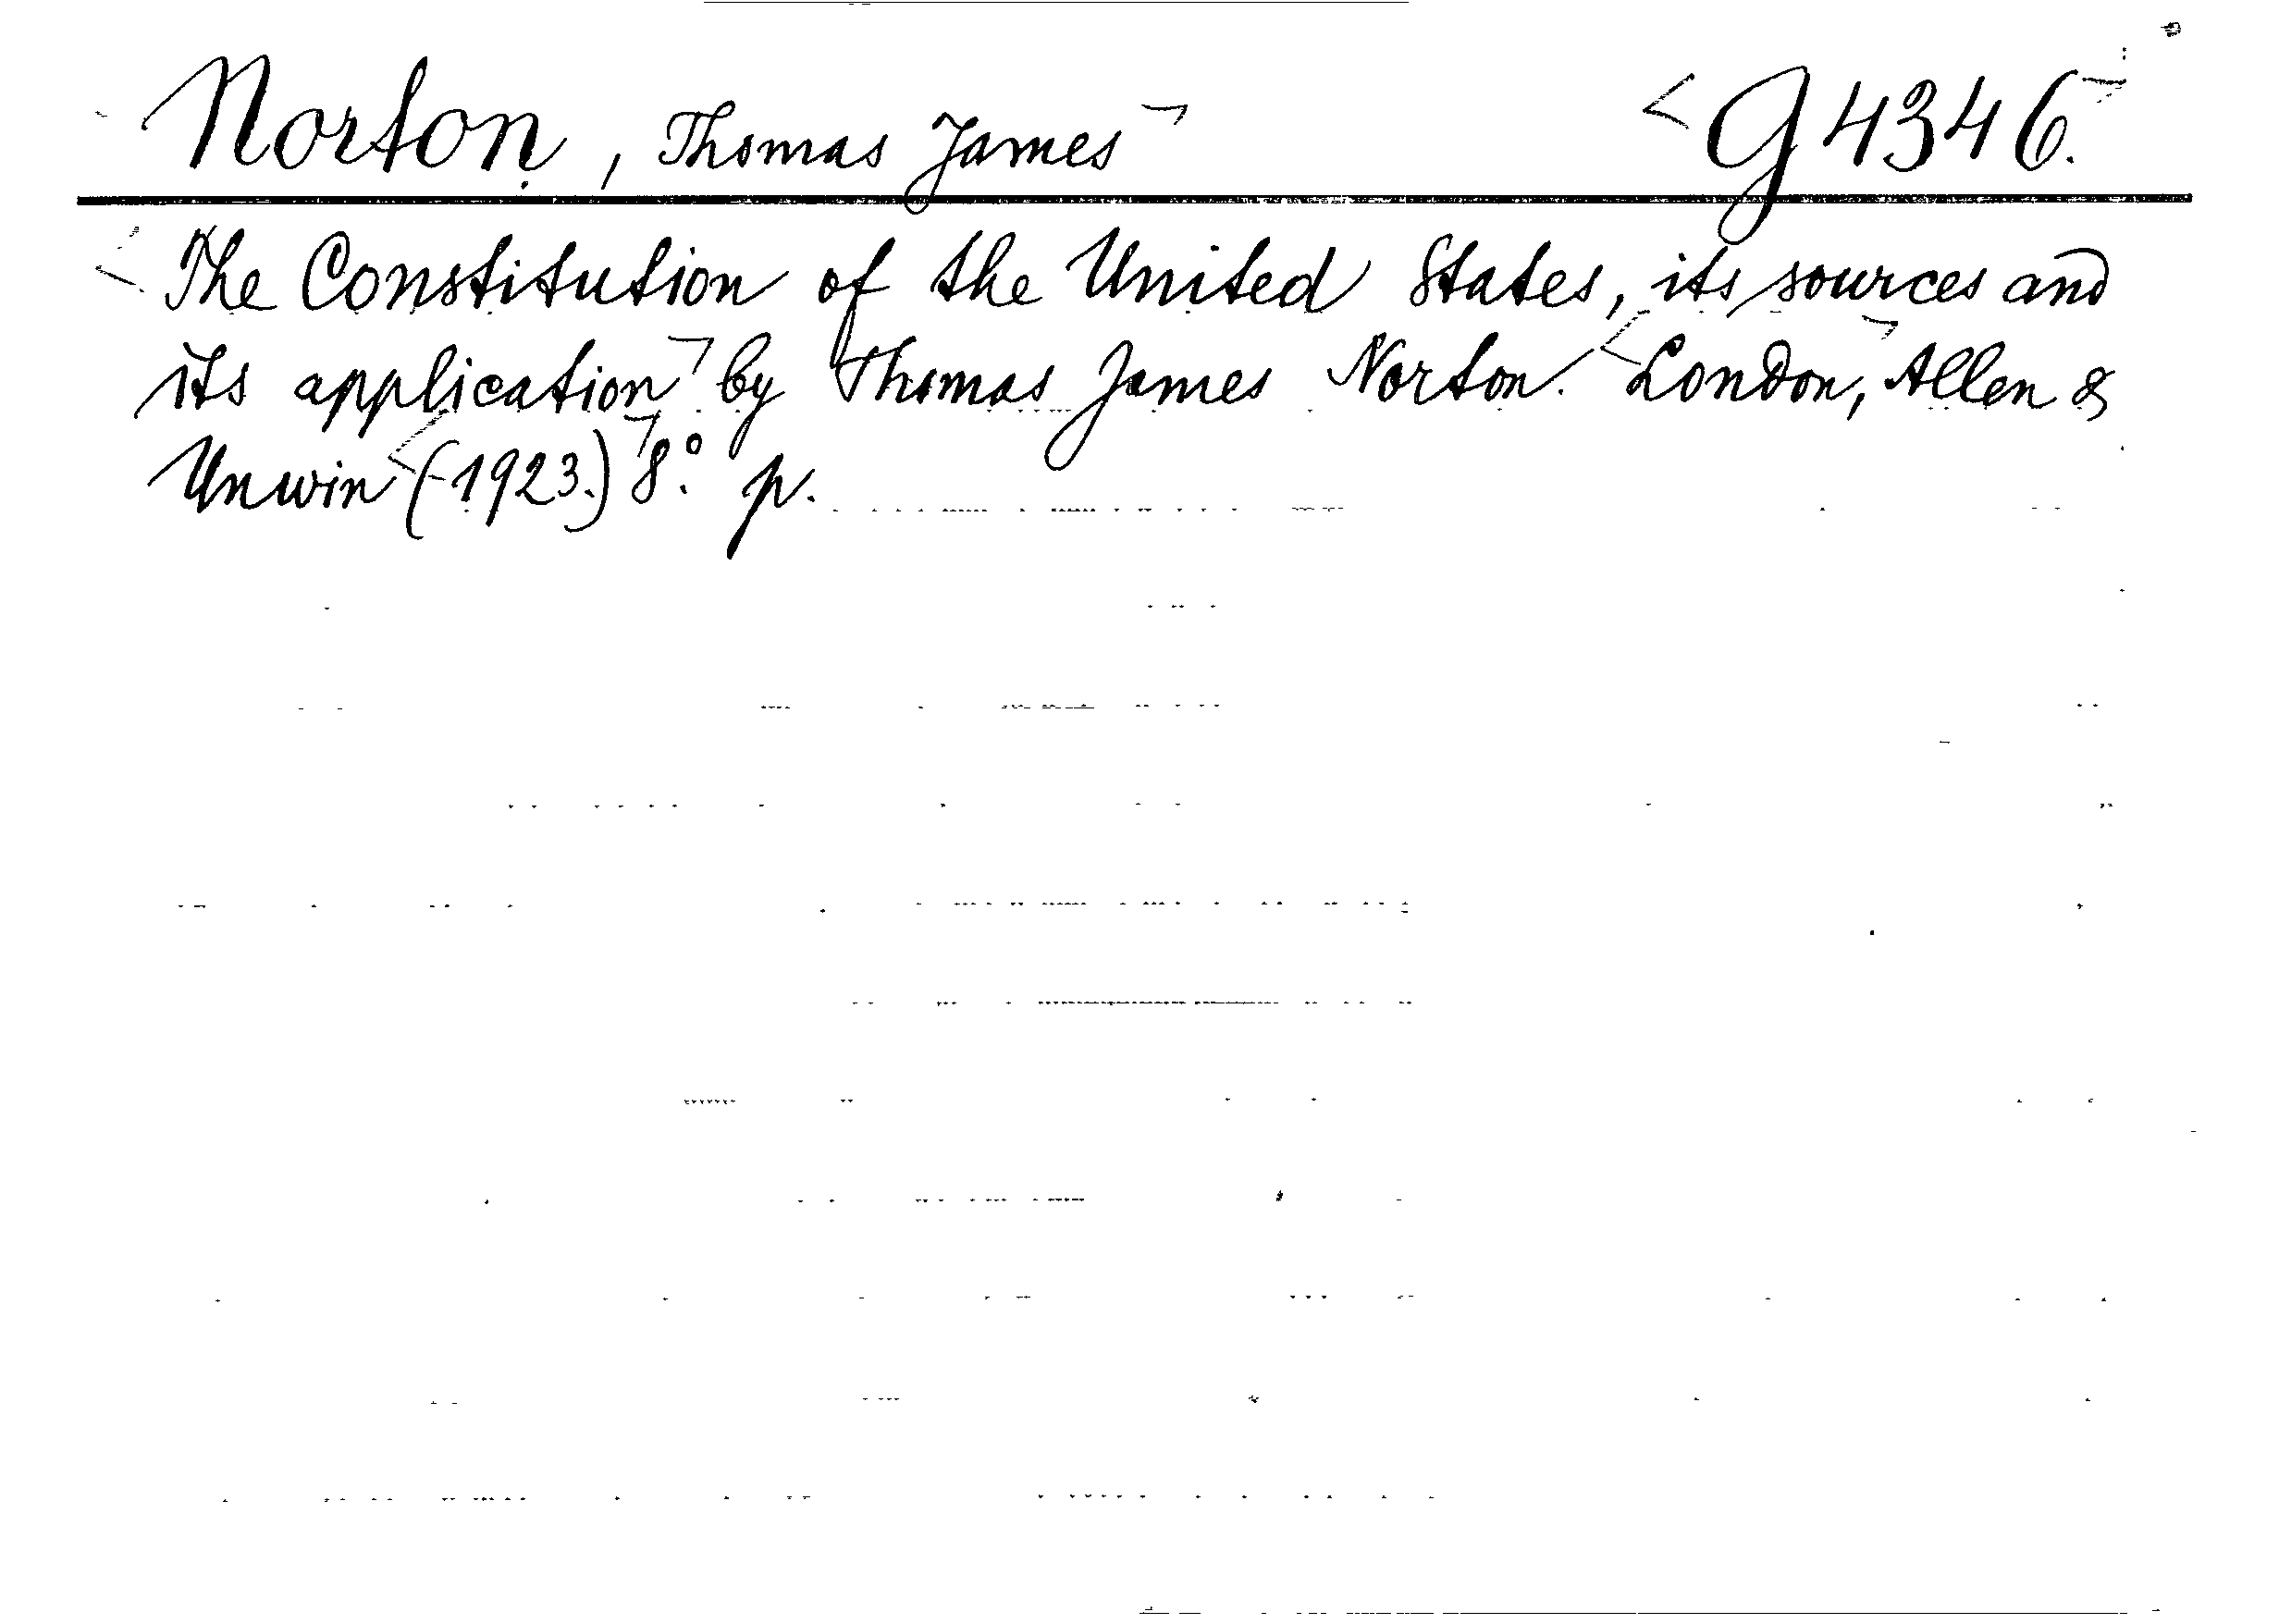 Norton, Thomas James G 4346.
The Constitution of the United States, its sources and
its application by Thomas James Norton. London, Allen &
Unwin (1923.) 8°. p.